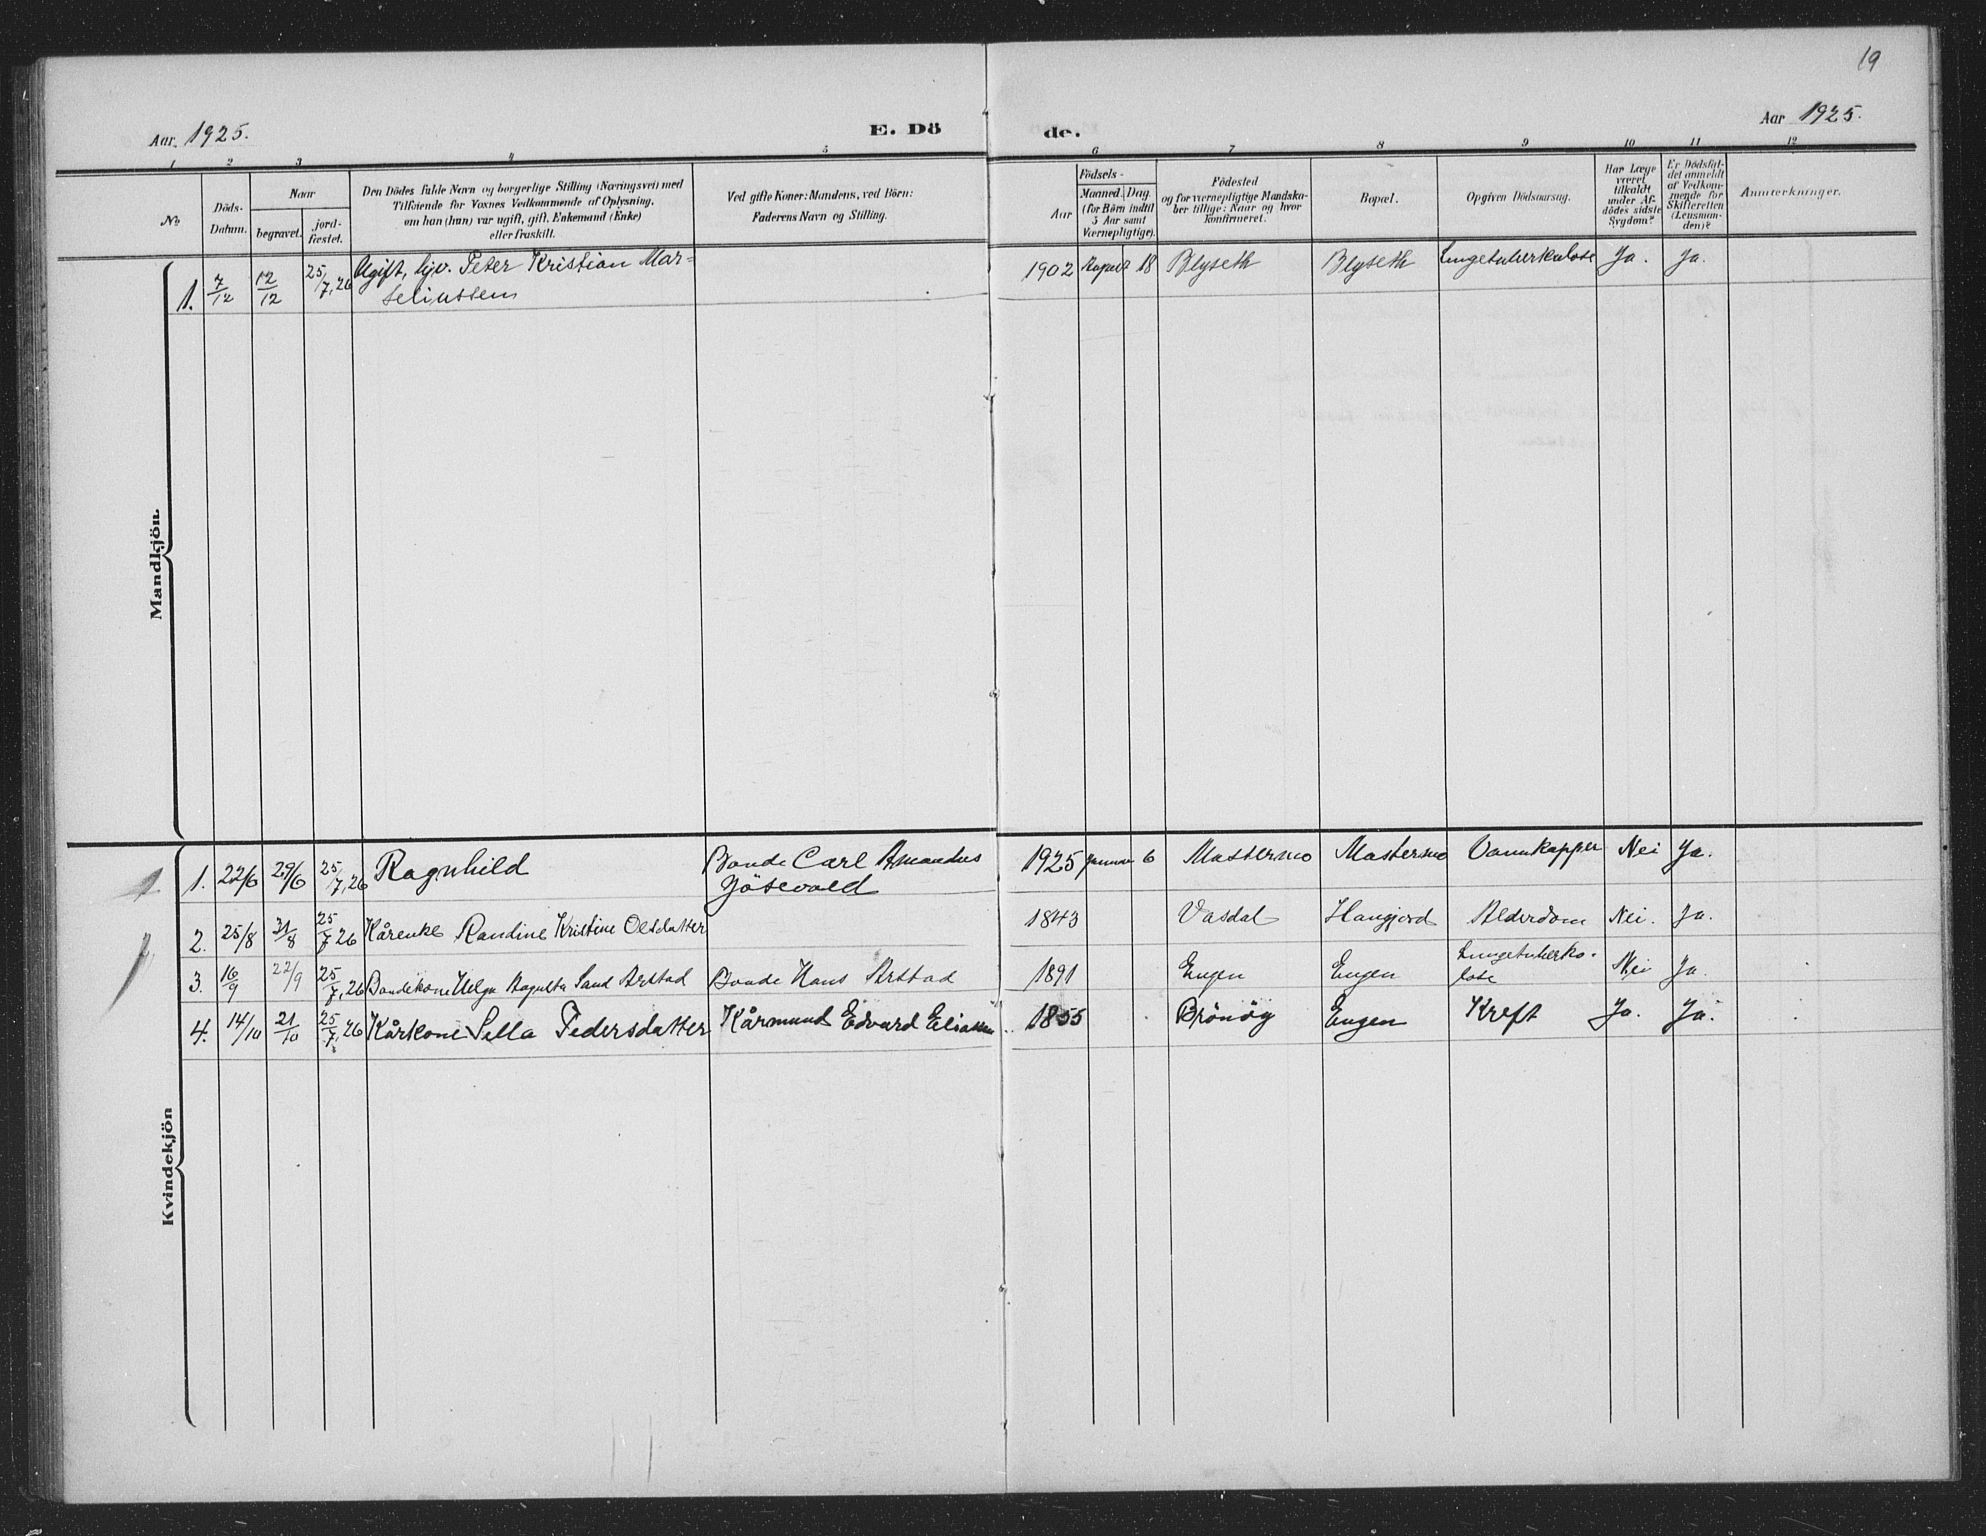 19
Aar. 1925.
E. Dö
de.
Aar 1925.
1 2 3 4 5 6 7 8 9 10 11 12
No
Döds-
Datum.
Naar
begravet.
jord-
fæstet.
Den Dödes fulde Navn og borgerlige Stilling (Næringsvei) med
Tilföiende for Voxnes Vedkommende af Oplysning,
om han (hun) var ugift, gift, Enkemand (Enke)
eller fraskilt.
Ved gifte Koner: Mandens, ved Börn:
Faderens Navn og Stilling.
Födsels-
Aar
Maaned. Dag.
(for Börn indtil
5 Aar samt
Værnepligtige).
Födested
og for værnepligtige Mandska-
ber tillige: Naar og hvor
konfirmeret.
Bopæl.
Opgiven Dödsaarsag.
Har Læge
været
tilkaldt
under Af-
dödes sidste
Sygdom?
Er Dödsfal-
det anmeldt
af Vedkom-
mende for
Skifteretten
(Lensman-
den)?
Anmærkninger.
Mandkjön.
1. 7/12 12/12 25/7, 26 Ugift, Peter Kristian Mar-
seliussen
1902 August 18 Blyseth Blyseth Lungetuberkulose Ja. Ja.
Kvindekjön
1. 22/6 29/6 25/7, 26 Ragnhild Bonde Carl Amandus
1925 Januar 6 Mastermo Mastermo Nei Ja.
2. 25/8 31/8 25/7 26 Kårenke Randine Kristine Olsdatter 1843 Vasdal Hangjord Alderdom Nei. Ja.
3. 16/9 22/9 25/7, 26 Bondekone Helga Augusta Sand Arstad Bonde Hans Arstad 1891 Engen Engen Lungetuberku-
lose Nei Ja.
4. 14/10 21/10 25/7, 26 Kårkone Sella Pedersdatter Kårmand Edvard Eliassen 1855 Brönöy Engen Kreft Ja. Ja.